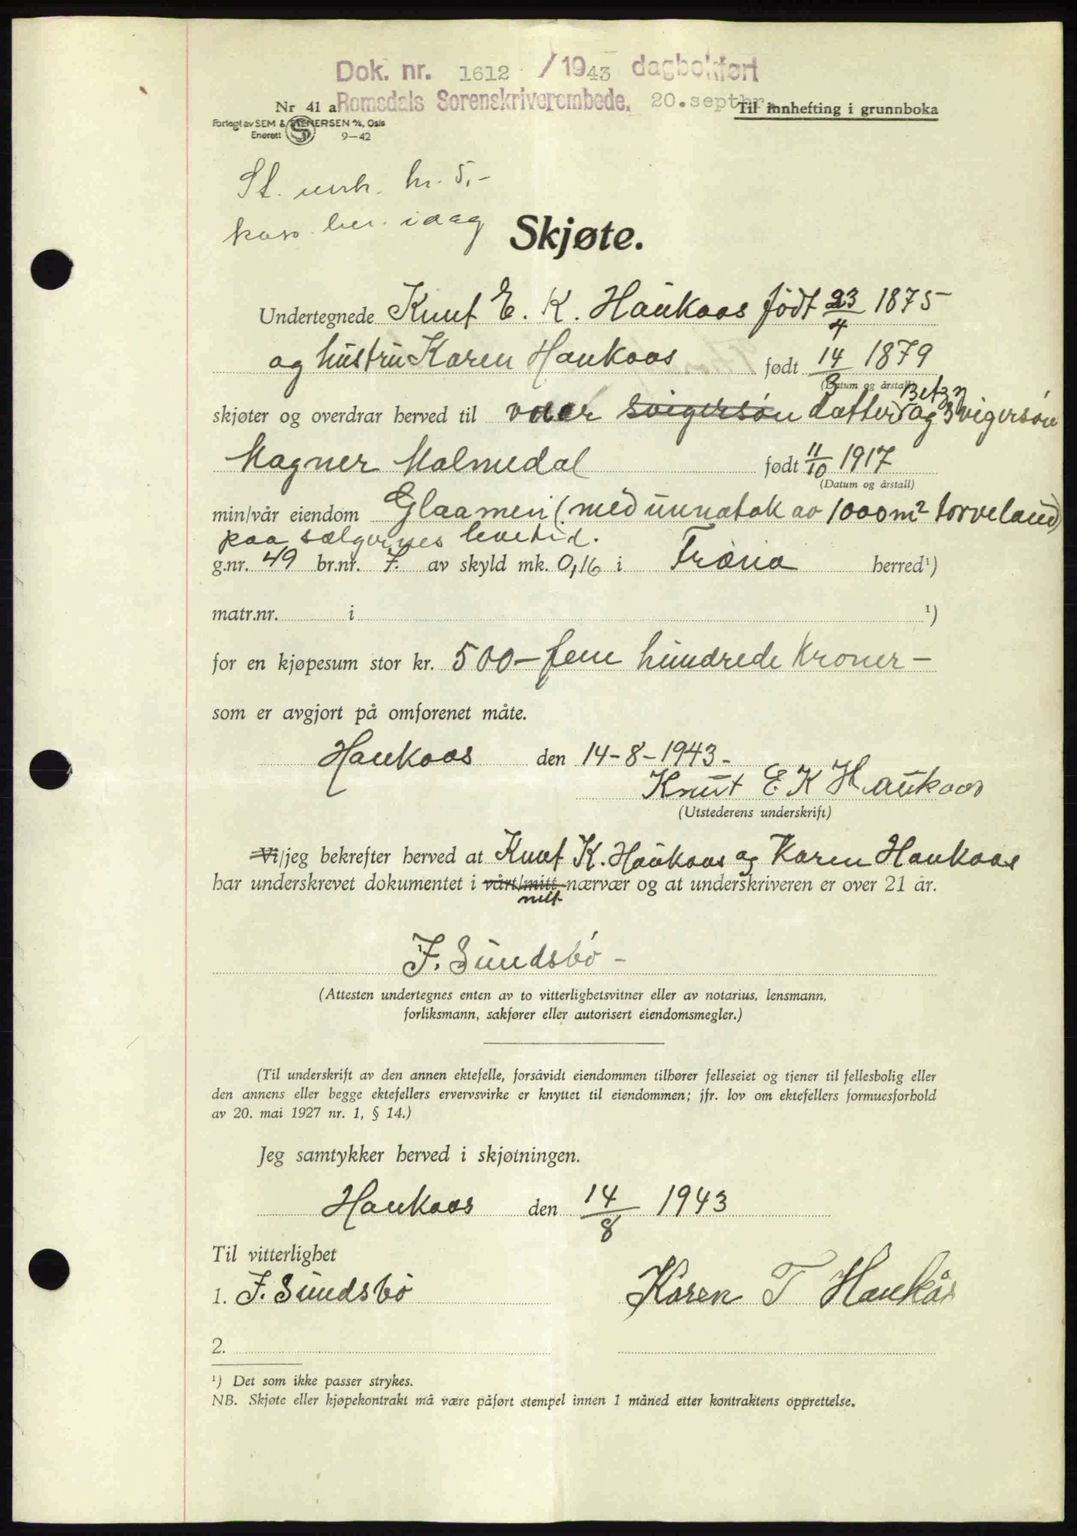 Dok. nr. 1612 /1943 dagbokført
Nr 41 a Romsdals Sorenskriverembede. 20. septbr. Til innhefting i grunnboka
Forlagt av SEM & STENERSEN A/S, Oslo
Enerett 9-42
St. merk. kr. 5,-
kas. ber. i dag
Skjøte.
Undertegnede Knut E. K. Haukaas født 23/4 1875
og hustru Karen Haukaas født 14/8 1879
(Datum og årstall)
Betzy
skjøter og overdrar herved til vaar svigersøn datter og svigersøn
Magner Malmedal født 11/10 1917
(Datum og årstall)
min/vår eiendom Glaamen (med unnatak av 1000 m² torveland)
paa sælgernes levetid.
g.nr. 49 br.nr. 7. av skyld mk. 0,16 i Fræna herred¹)
matr.nr. i ¹)
for en kjøpesum stor kr. 500 – fem hundrede kroner –
som er avgjort på omforenet måte.
Haukaas den 14-8-1943-
Knut E K Haukaas
(Utstederens underskrift)
Vi/jeg bekrefter herved at Knut K. Haukaas og Karen Haukaas
har underskrevet dokumentet i vårt/mitt nærvær og at underskriveren er over 21 år.
mitt
J. Sundsbö -
(Attesten undertegnes enten av to vitterlighetsvitner eller av notarius, lensmann,
forliksmann, sakfører eller autorisert eiendomsmegler.)
(Til underskrift av den annen ektefelle, forsåvidt eiendommen tilhører felleseiet og tjener til fellesbolig eller
den annens eller begge ektefellers ervervsvirke er knyttet til eiendommen; jfr. lov om ektefellers formuesforhold
av 20. mai 1927 nr. 1, § 14.)
Jeg samtykker herved i skjøtningen.
Haukaas den 14/8 1943
Til vitterlighet
1. J. Sundsbö Karen T Haukås
2.
¹) Det som ikke passer strykes.
NB. Skjøte eller kjøpekontrakt må være påført stempel innen 1 måned etter kontraktens opprettelse.